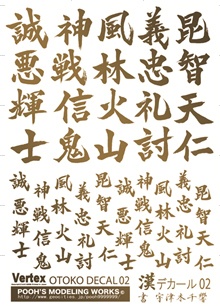 誠神風義昆
悪戦林忠智
輝信火礼天
士鬼山討仁
誠悪輝士
神戦信鬼
風林火山
義忠礼討
昆智天仁
誠悪輝士
神戦信鬼
風林火山
義忠礼討
昆智天仁
Vertex OTOKO DECAL 02
POOH'S MODELING WORKS
漢デカール 02